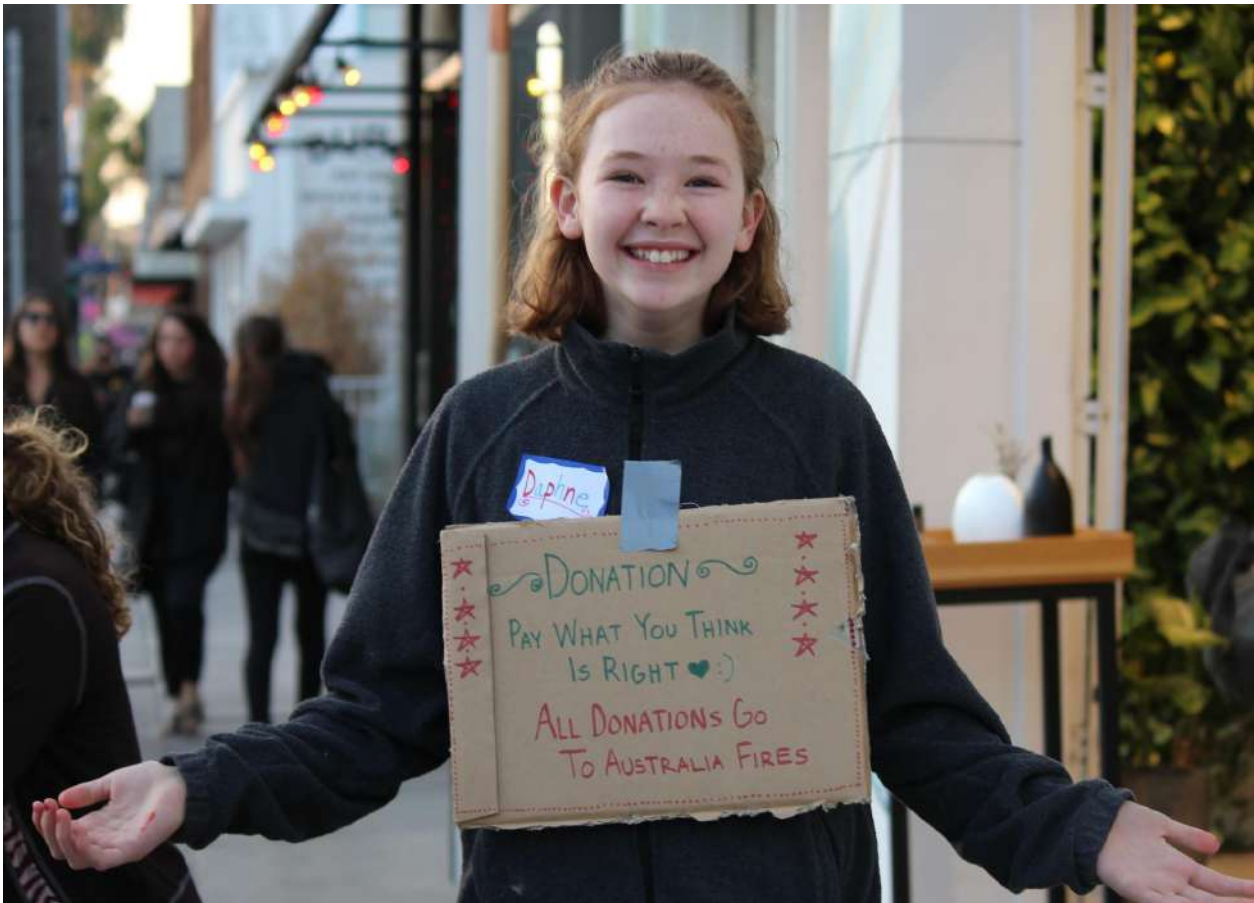 Daphne
DONATION
PAY WHAT YOU THINK
IS RIGHT ♥ :)
ALL DONATIONS GO
TO AUSTRALIA FIRES